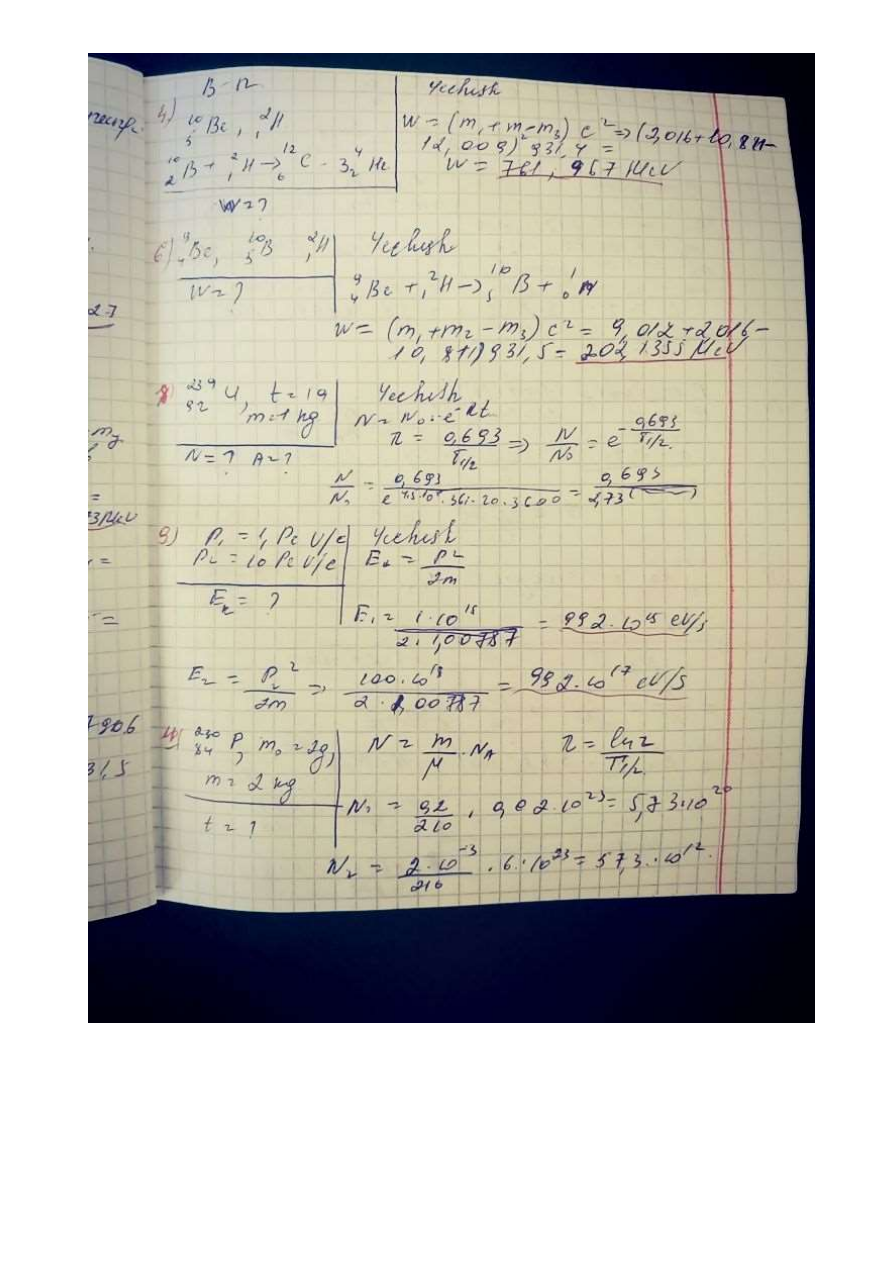 B-12
4) ¹⁰₅Be, ²₁H
¹⁰₂B + ²₁H → ¹²₆C - 3⁴₂He
W = ?
Yechish
W = (m₁ + m₂ - m₃) c² => (2,016 + 10,811 -
12,009) 931,4 =
W = 761,967 MeV
6) ⁹₄Be, ¹⁰₅B ²₁H
W = ?
Yechish
⁹₄Be + ₁²H → ¹⁰₅B + ¹₀n
W = (m₁ + m₂ - m₃) c² = 9,012 + 2,016 -
10,811) 931,5 = 202,1355 MeV
8) ²³⁹₉₂U, t = 19
m = 1 kg
N = ? A = ?
Yechish
N = N₀ · e⁻λt
λ = 0,693/T1/2 => N/N₀ = e^-0,693/T1/2
= 0,693
9) P₁ = 1, PeV/c
P₂ = 10 PeV/c
Eₖ = ?
Yechish
Eₖ = P²/2m
E₁ = 1·10¹⁵/2·1,00787 = 992·10¹⁵ eV/s
E₂ = P₂²/2m => 100·10¹⁵/2·1,00787 = 992·10¹⁷ eV/s
P, m₀ = 2g,
m = 2 kg
t = ?
N = m/μ · Nᴀ λ = ln2/T1/2
210 = 5,73·10²⁰
N₂ = 2·10⁻³/210 · 6·10²³ = 57,3·10¹²
2.7
3 MeV
2906
31,5